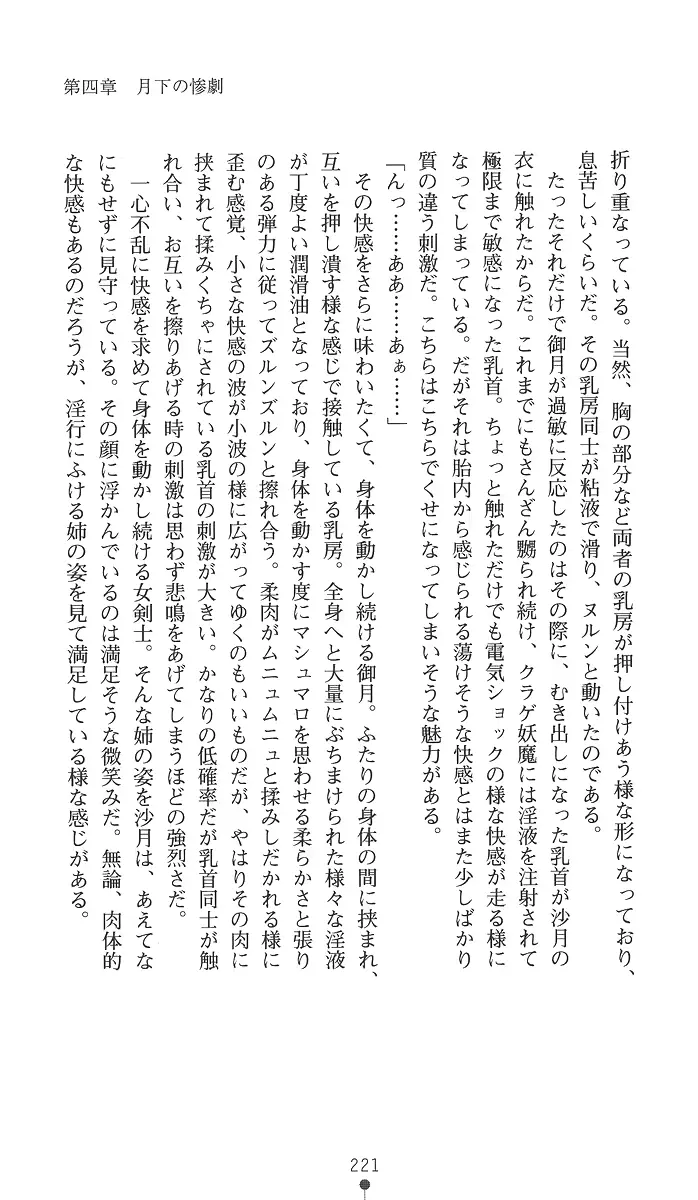 第四章　月下の惨劇
折り重なっている。当然、胸の部分など両者の乳房が押し付けあう様な形になっており、
息苦しいくらいだ。その乳房同士が粘液で滑り、ヌルンと動いたのである。
たったそれだけで御月が過敏に反応したのはその際に、むき出しになった乳首が沙月の
衣に触れたからだ。これまでにもさんざん嬲られ続け、クラゲ妖魔には淫液を注射されて
極限まで敏感になった乳首。ちょっと触れただけでも電気ショックの様な快感が走る様に
なってしまっている。だがそれは胎内から感じられる蕩けそうな快感とはまた少しばかり
質の違う刺激だ。こちらはこちらでくせになってしまいそうな魅力がある。
「んっ……ああ……あぁ……」
その快感をさらに味わいたくて、身体を動かし続ける御月。ふたりの身体の間に挟まれ、
互いを押し潰す様な感じで接触している乳房。全身へと大量にぶちまけられた様々な淫液
が丁度よい潤滑油となっており、身体を動かす度にマシュマロを思わせる柔らかさと張り
のある弾力に従ってズルンズルンと擦れ合う。柔肉がムニュムニュと揉みしだかれる様に
歪む感覚、小さな快感の波が小波の様に広がってゆくのもいいものだが、やはりその肉に
挟まれて揉みくちゃにされている乳首の刺激が大きい。かなりの低確率だが乳首同士が触
れ合い、お互いを擦りあげる時の刺激は思わず悲鳴をあげてしまうほどの強烈さだ。
一心不乱に快感を求めて身体を動かし続ける女剣士。そんな姉の姿を沙月は、あえてな
にもせずに見守っている。その顔に浮かんでいるのは満足そうな微笑みだ。無論、肉体的
な快感もあるのだろうが、淫行にふける姉の姿を見て満足している様な感じがある。
221